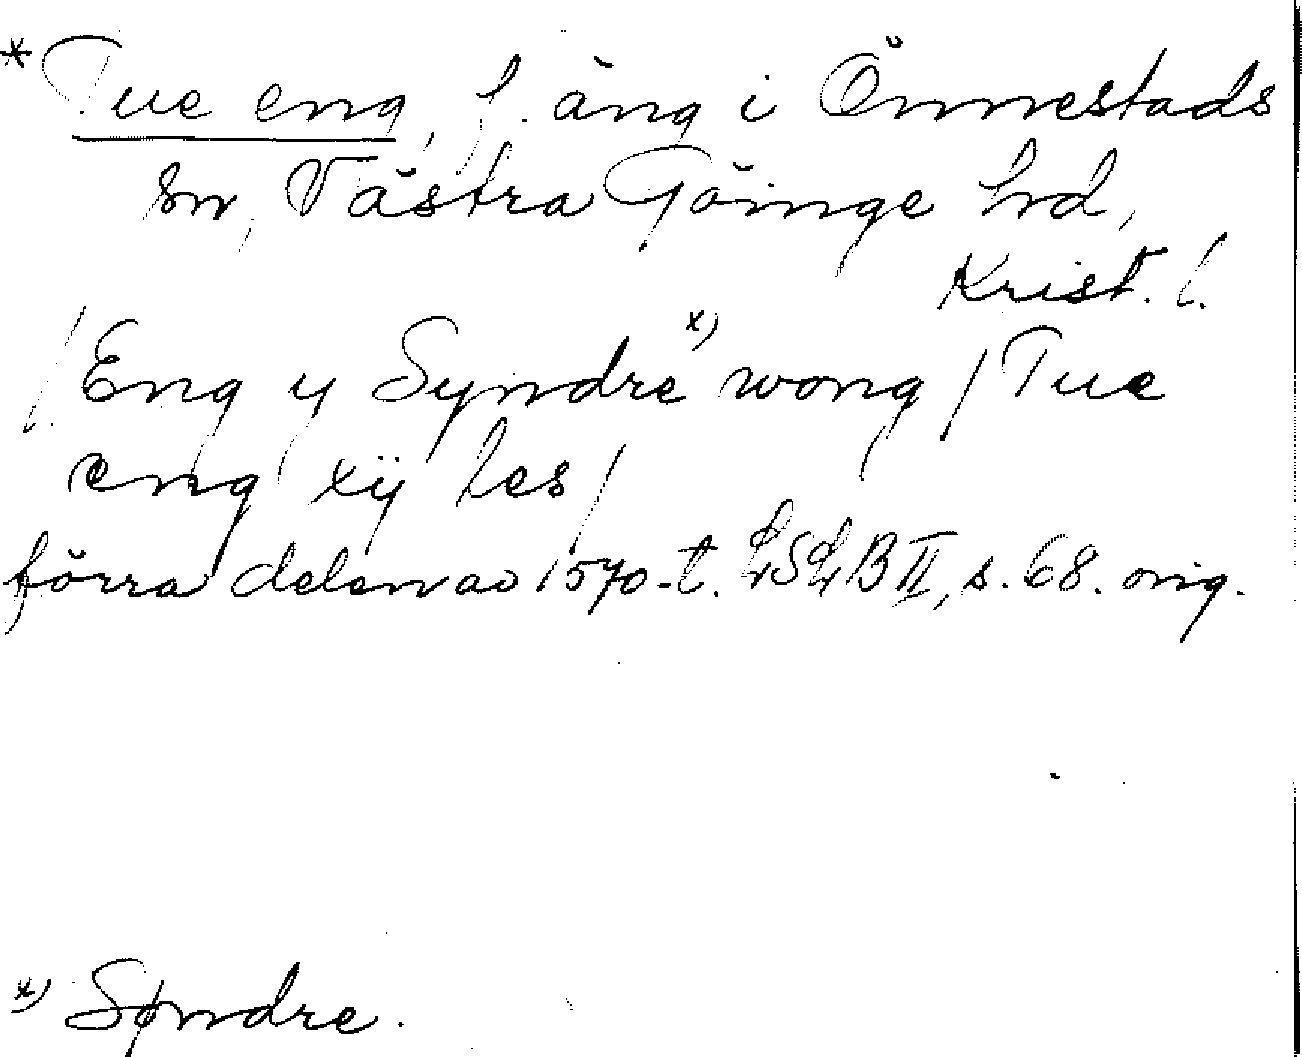 * Tue eng, f. äng i Önnestads
sn, Västra Göinge hd,
Krist. l.
/: Eng y Syndre x) wong / Tue
eng xij les /
förra delen av 1570-t. LSLB II, s. 68. orig.
x) Søndre.